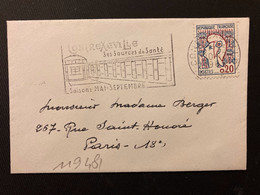 CONTREXÉVILLE
Des Sources de Santé
SAISON: MAI-SEPTEMBRE
REPUBLIQUE FRANÇAISE
POSTES
0,20
Monsieur Madame Berger
257, Rue Saint. Honoré
Paris - 1er
119481